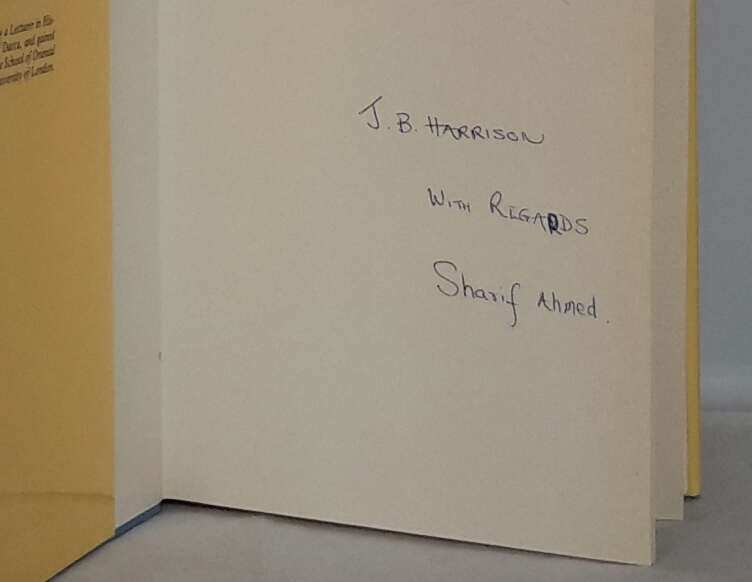 a Lecturer in His-
Dacca, and gained
School of Oriental
University of London.
J. B. HARRISON
WITH REGARDS
Sharif Ahmed.